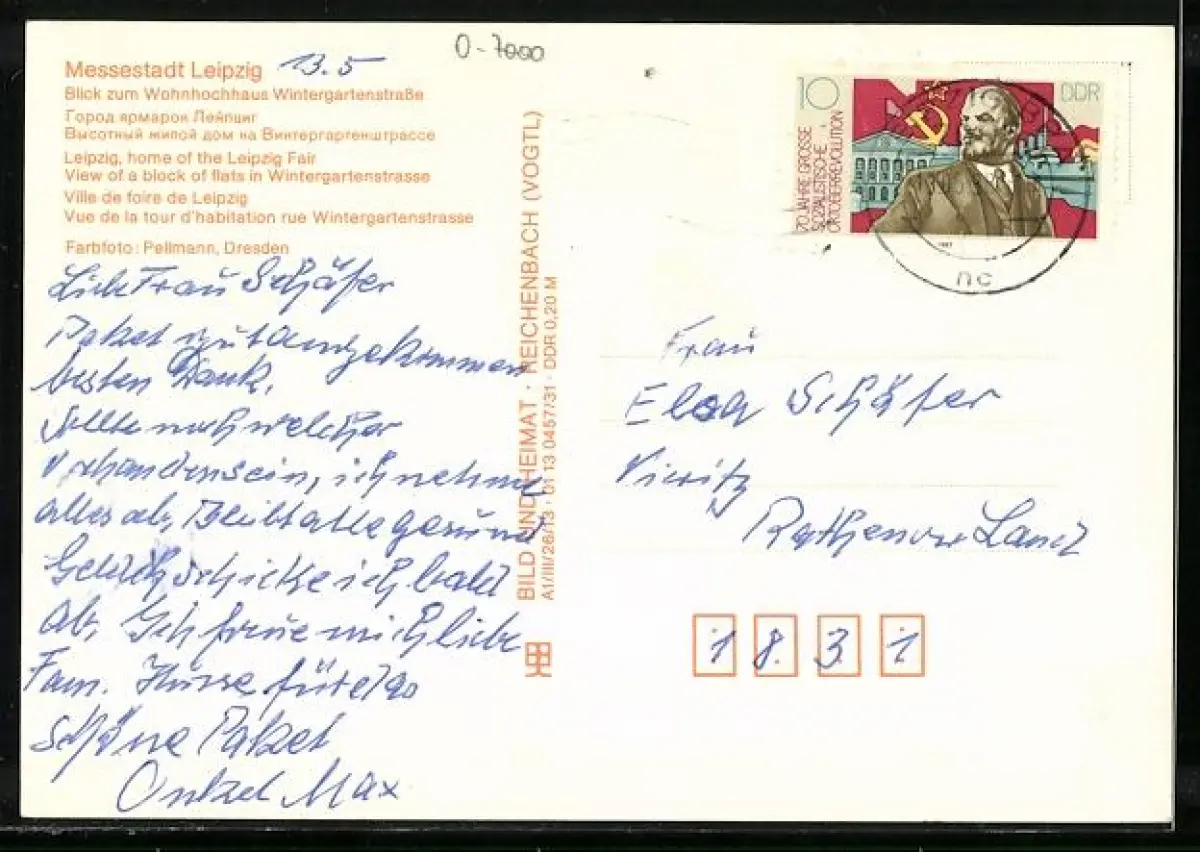 O-7000
Messestadt Leipzig 13.5
Blick zum Wohnhochhaus Wintergartenstraße
Город ярмарок Лейпциг
Высотный жилой дом на Винтергартенштрассе
Leipzig, home of the Leipzig Fair
View of a block of flats in Wintergartenstrasse
Ville de foire de Leipzig
Vue de la tour d'habitation rue Wintergartenstrasse
Farbfoto: Pellmann, Dresden
Liebe Frau Schäfer
Paket gut angekommen
besten Dank.
Sollte noch welcher
vorhanden sein, ich nehme
alles ab, Bleibt alle gesund
Geld schicke ich bald
ab, Ich freue mich liebe
Fam. für
schöne Paket
Onkel Max
BILD UND HEIMAT · REICHENBACH (VOGTL)
A1/III/26/13 · 01 13 0457/31 · DDR 0,20 M
10
DDR
70 JAHRE GROSSE
SOZIALISTISCHE
OKTOBERREVOLUTION
1987
nc
Frau
Elsa Schäfer
Vieritz
Rathenow Land
1 8 3 1